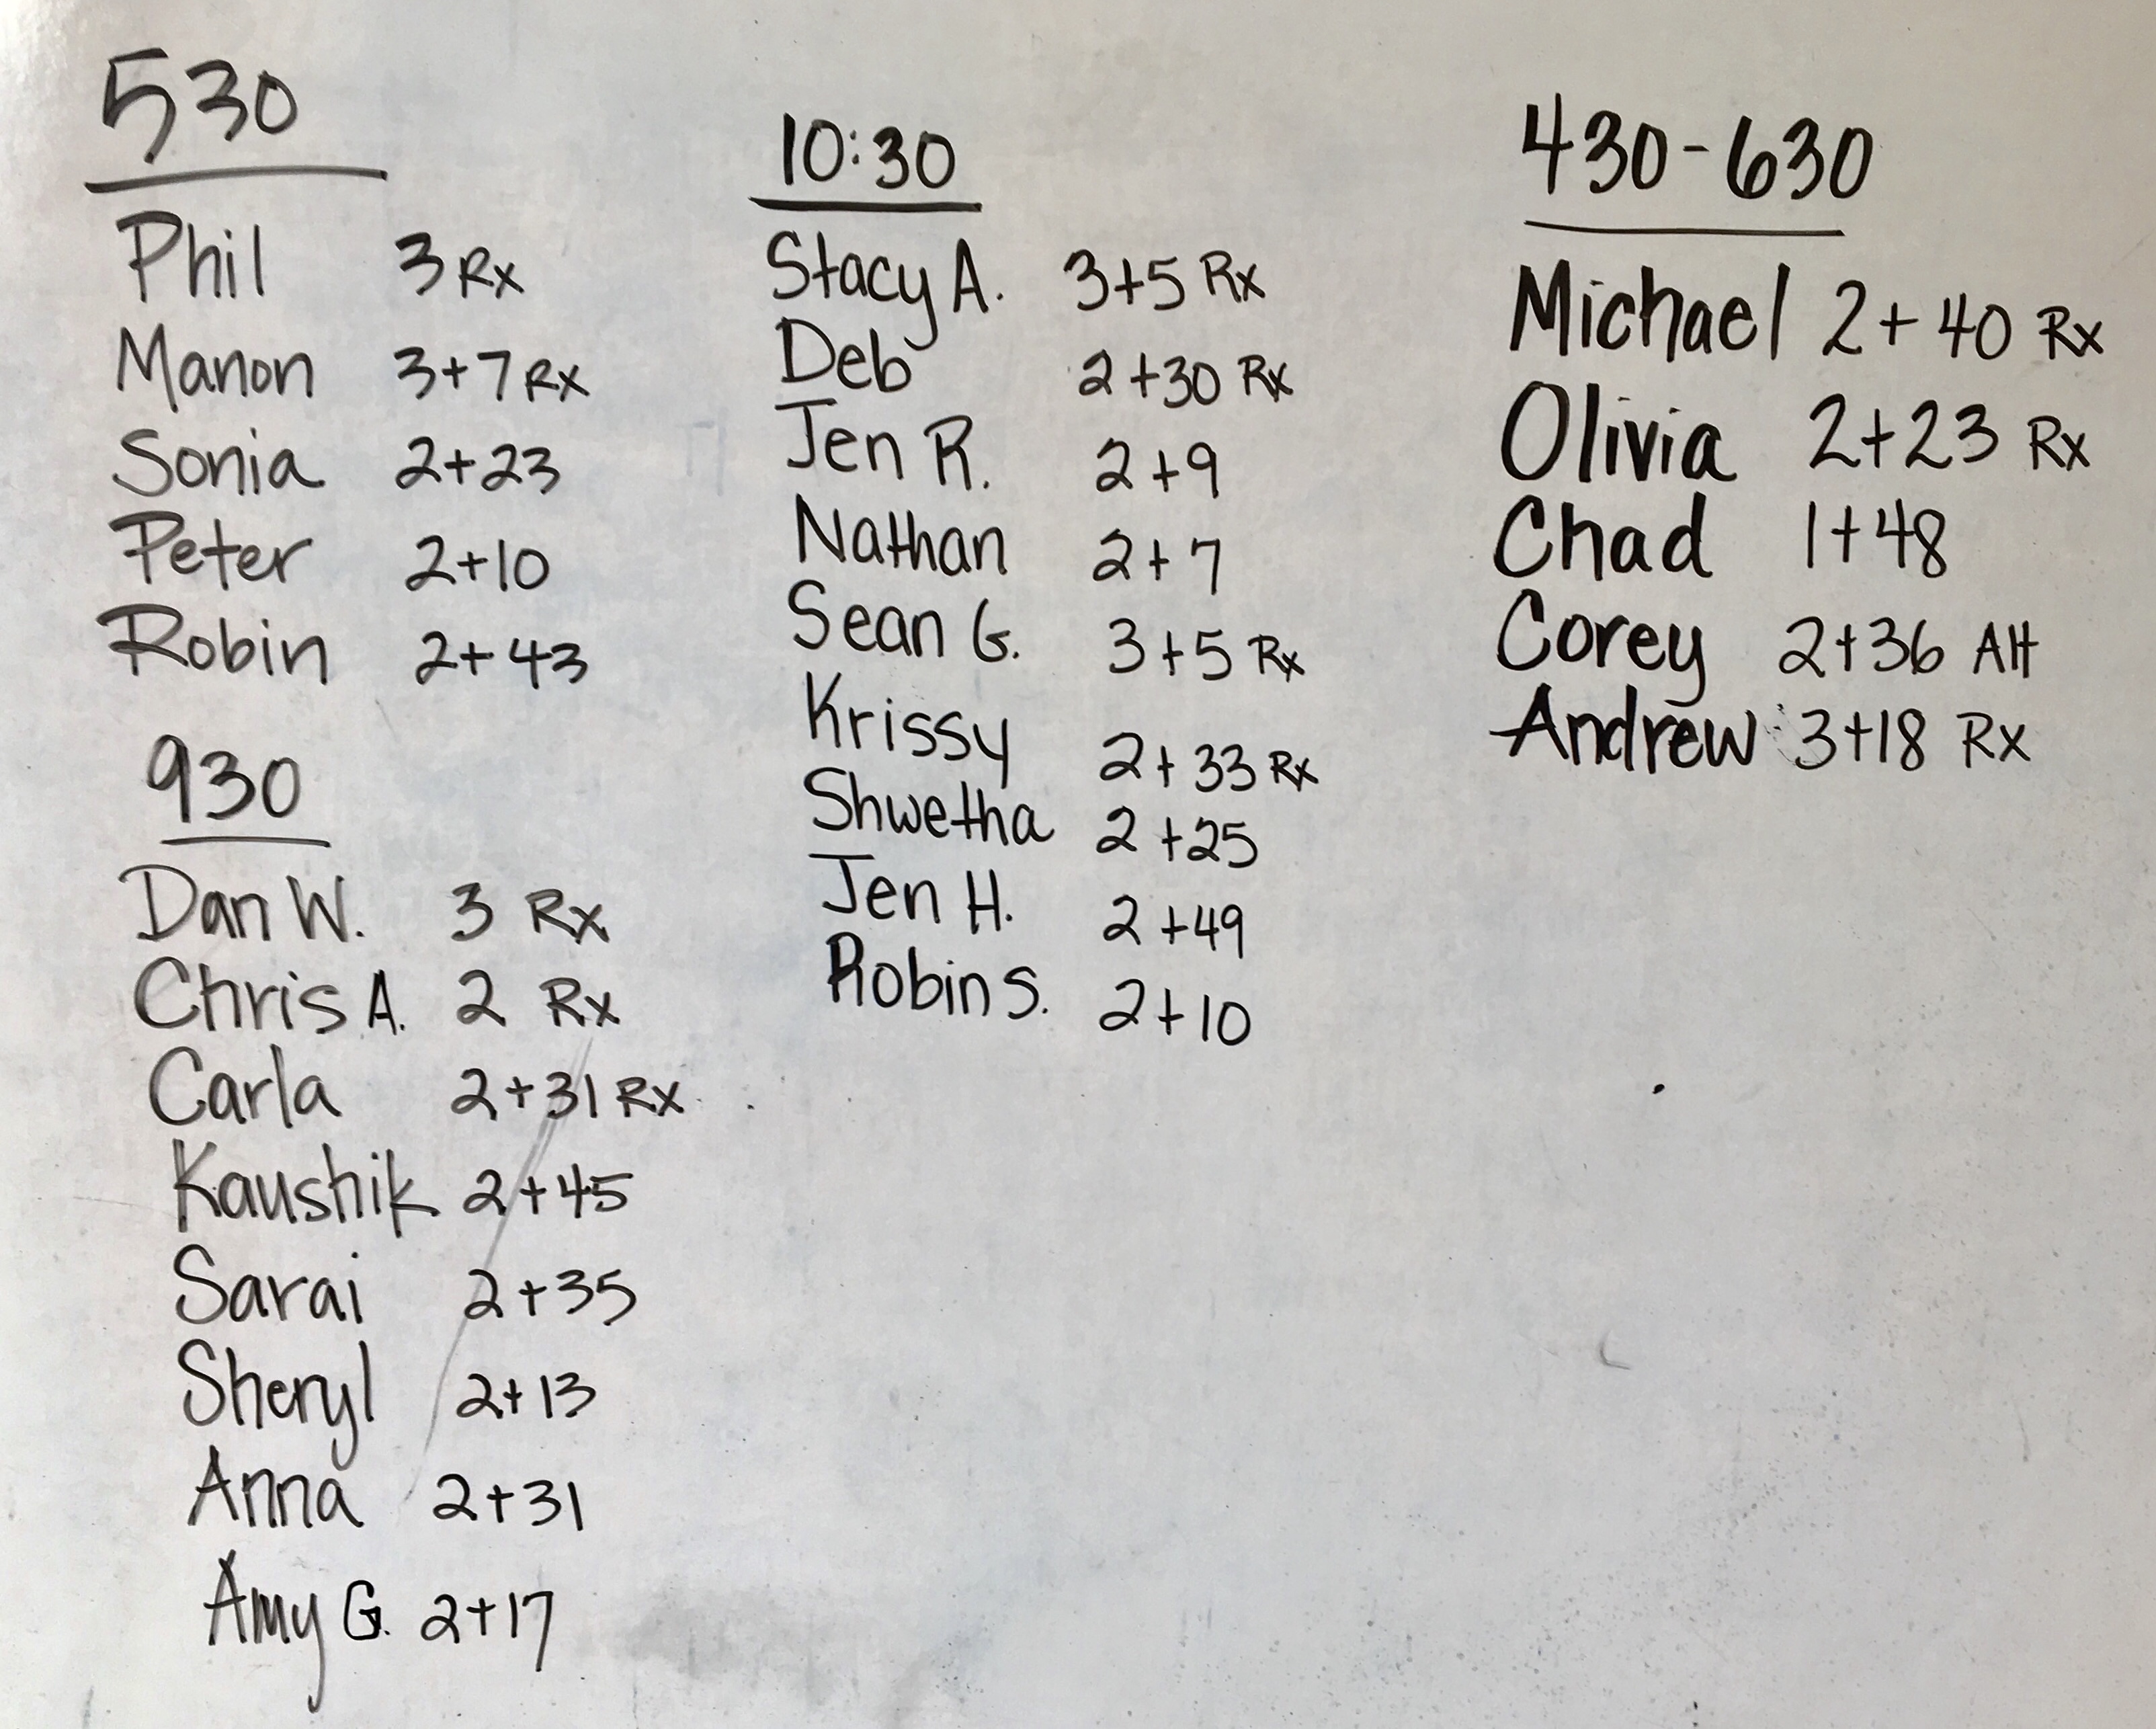 530
Phil 3 Rx
Manon 3+7 Rx
Sonia 2+23
Peter 2+10
Robin 2+43
930
Dan W. 3 Rx
Chris A. 2 Rx
Carla 2+31 Rx
Kaushik 2+45
Sarai 2+35
Sheryl 2+13
Anna 2+31
Amy G. 2+17
10:30
Stacy A. 3+5 Rx
Deb 2+30 Rx
Jen R. 2+9
Nathan 2+7
Sean G. 3+5 Rx
Krissy 2+33 Rx
Shwetha 2+25
Jen H. 2+49
Robin S. 2+10
430-630
Michael 2+40 Rx
Olivia 2+23 Rx
Chad 1+48
Corey 2+36 Alt
Andrew 3+18 Rx